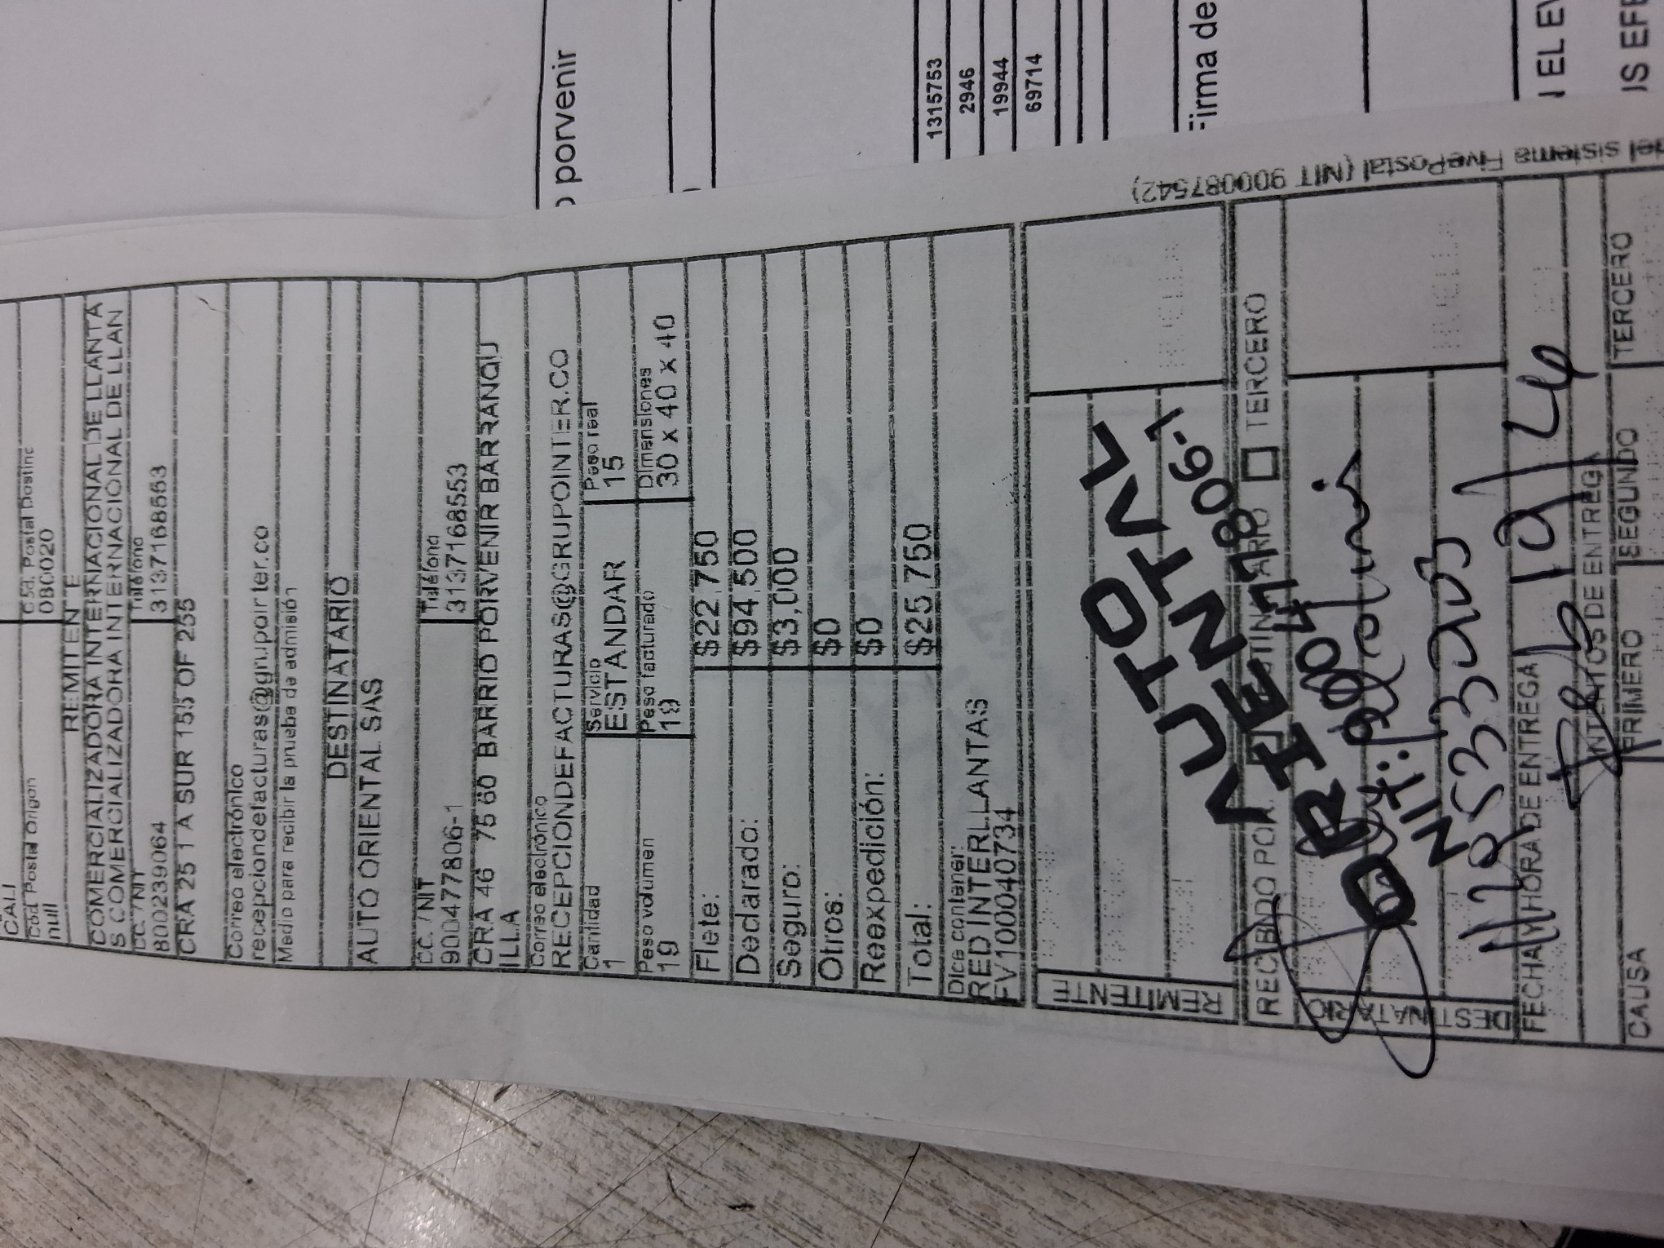 CALI
Cód. Postal Origen Cód. Postal Destino
null 080020
REMITENTE
COMERCIALIZADORA INTERNACIONAL DE LLANTA
S COMERCIALIZADORA INTERNACIONAL DE LLAN
CC. / NIT Teléfono
800239064 3137168553
CRA 25 1 A SUR 155 OF 255
Correo electrónico
recepciondefacturas@grupointer.co
Medio para recibir la prueba de admisión
DESTINATARIO
AUTO ORIENTAL SAS
CC. / NIT Teléfono
900477806-1 3137168553
CRA 46 75 60 BARRIO PORVENIR BARRANQU
ILLA
Correo electrónico
RECEPCIONDEFACTURAS@GRUPOINTER.CO
Cantidad Servicio Peso real
1 ESTANDAR 15
Peso volumen Peso facturado Dimensiones
19 19 30 x 40 x 40
Flete: $22,750
Declarado: $94,500
Seguro: $3,000
Otros: $0
Reexpedición: $0
Total: $25,750
Dice contener:
RED INTERLLANTAS
FV1000040734
REMITENTE
AUTO
ORIENTAL
NIT: 900477806-1
RECIBIDO POR: DESTINATARIO TERCERO
DESTINATARIO
FECHA Y HORA DE ENTREGA
INTENTOS DE ENTREGA
CAUSA PRIMERO SEGUNDO TERCERO
del sistema FivePostal (NIT 900087542)
porvenir
1315753
2946
19944
69714
Firma de
N EL EV
US EFE